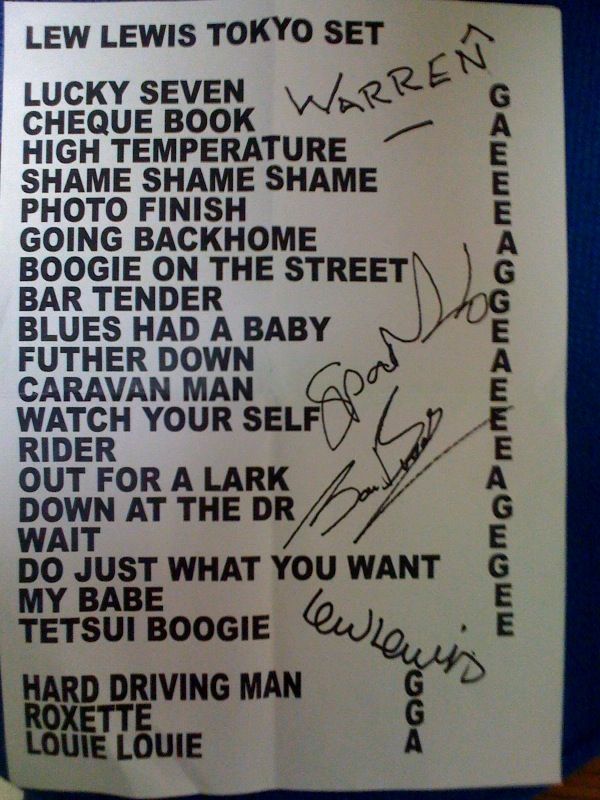 LEW LEWIS TOKYO SET
WARREN
LUCKY SEVEN G
CHEQUE BOOK A
HIGH TEMPERATURE E
SHAME SHAME SHAME E
PHOTO FINISH E
GOING BACKHOME A
BOOGIE ON THE STREET G
BAR TENDER G
BLUES HAD A BABY E
FUTHER DOWN A
CARAVAN MAN E
WATCH YOUR SELF E
RIDER E
OUT FOR A LARK A
DOWN AT THE DR G
WAIT E
DO JUST WHAT YOU WANT G
MY BABE E
TETSUI BOOGIE E
Lew Lewis
HARD DRIVING MAN G
ROXETTE G
LOUIE LOUIE A